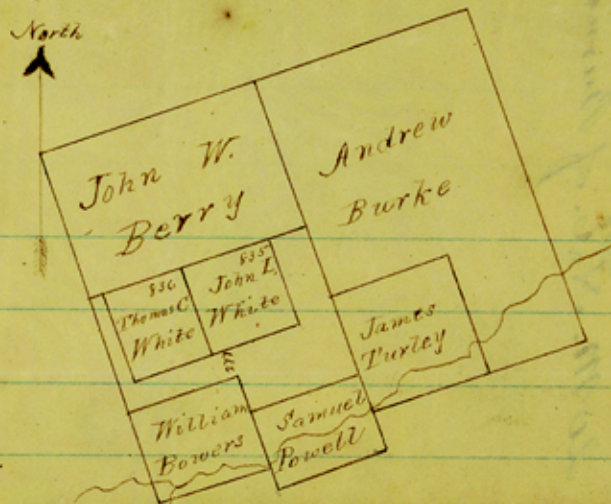 North
John W.
Berry
Andrew
Burke
836
Thomas C
White
835
John L.
White
James
Turley
William
Bowers
Samuel
Powell